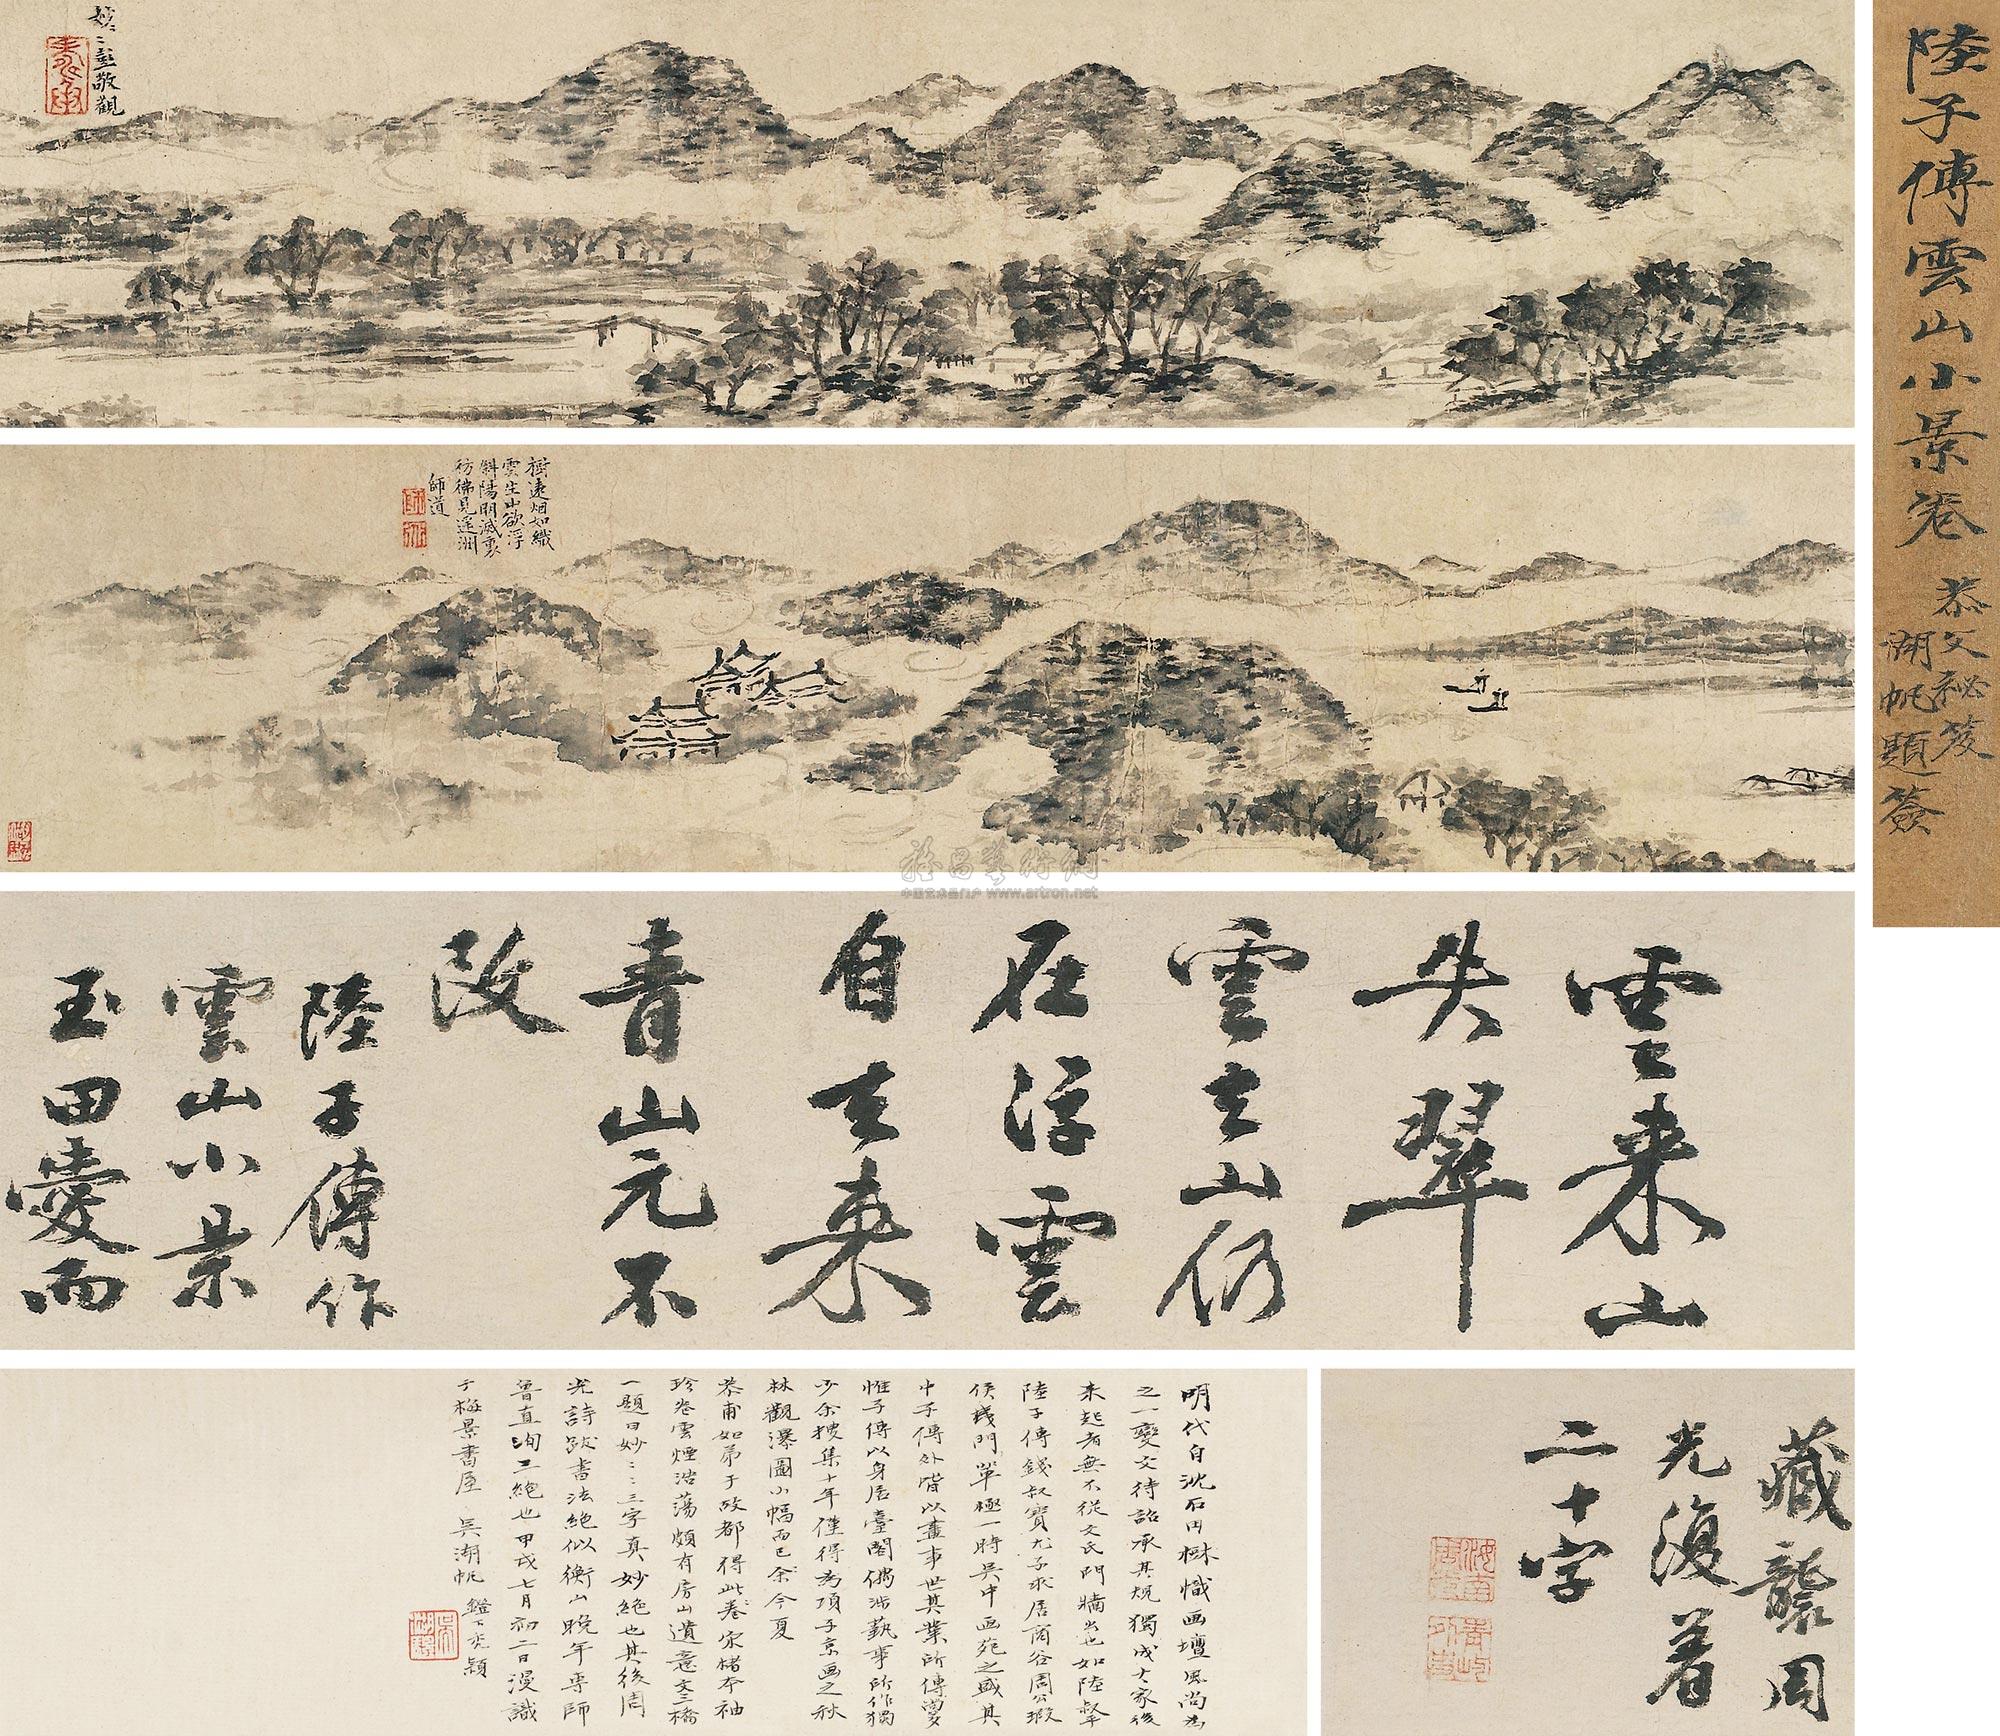 陸子傳雲山小景卷
恭父祕笈
湖帆題簽
敬觀
樹遠烟如織
雲生山欲浮
斜陽明滅裏
彷彿見遥洲
師道
雲來山
失翠
雲去山仍
在浮雲
自去來
青山元不
改
陸子傳作
雲山小景
玉田愛而
藏襲周
光復著
二十字
明代自沈石田樹幟画壇風尚為
之一變文待詔承其規獨成大家後
來起者無不從文氏門牆出也如陸叔平
陸子傳錢叔寶尤子求居商谷周公瑕
侯機門單極一時吴中画苑之盛其
中子傳外皆以畫事世其業所傳夥
惟子傳以身居臺閣偶涉藝事所作獨
少余搜集十年僅得為項子京画之秋
林觀瀑圖小幅而已余今夏
恭甫如弟于故都得此卷宋楮本袖
珍卷雲煙浩蕩頗有房山遺意文三橋
一題曰妙三三字真妙絶也其後周
光詩跋書法絶似衡山晚年專師
魯直洵三絶也甲戌七月初二日漫識
于梅景書屋 吴湖帆
雅昌藝術網
www.artron.net